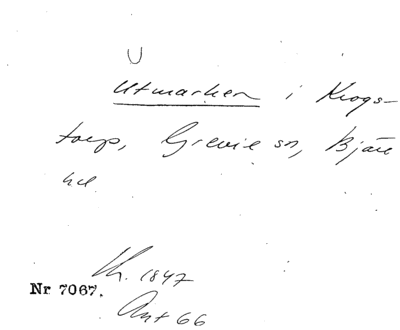 U
Utmarken i Krogs-
torp, Grevie sn, Bjäre
hd
Lh. 1847
Nr 7067.
Ant 66